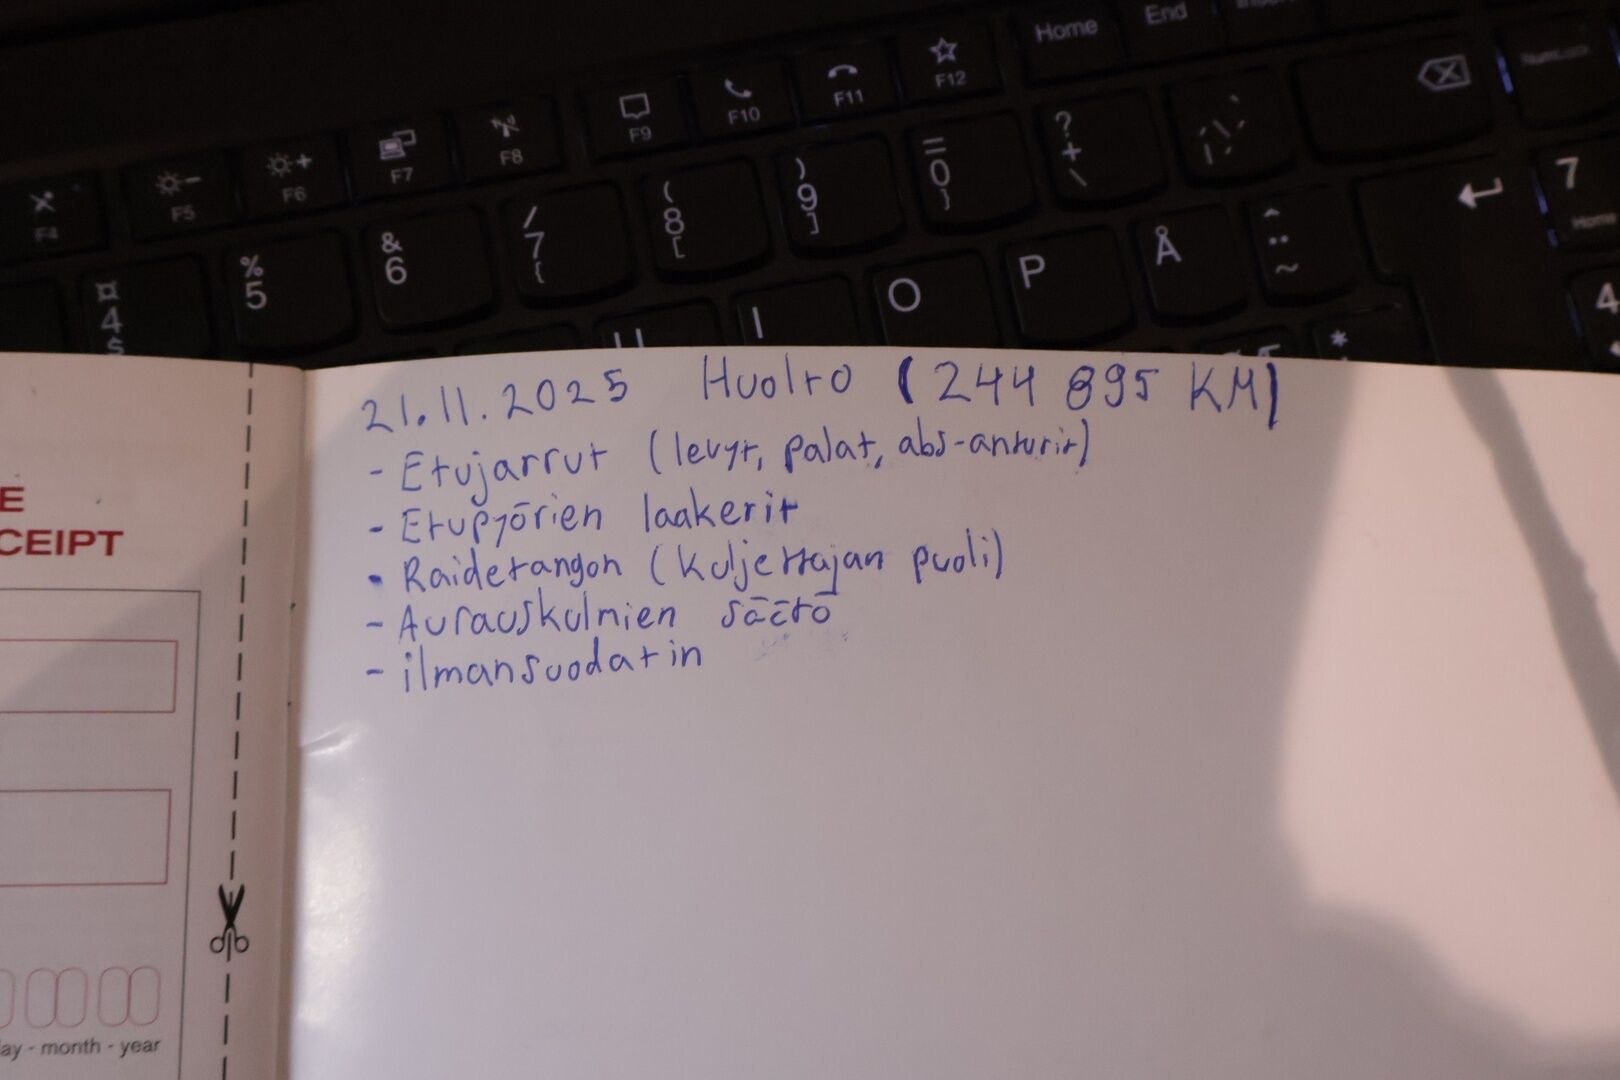 Home End
F4 F5 F6 F7 F8 F9 F10 F11 F12
¤ 4 $ % 5 & 6 / 7 { ( 8 [ ) 9 ] = 0 } ? + \ 7 Home
U I O P Å ^ ¨ ~ 4
* '
21.11.2025 Huolto (244 895 KM)
- Etujarrut (levyt, palat, abs-anturit)
- Etupyörien laakerit
- Raidetangon (kuljettajan puoli)
- Aurauskulmien säätö
- ilmansuodatin
E
CEIPT
ay - month - year